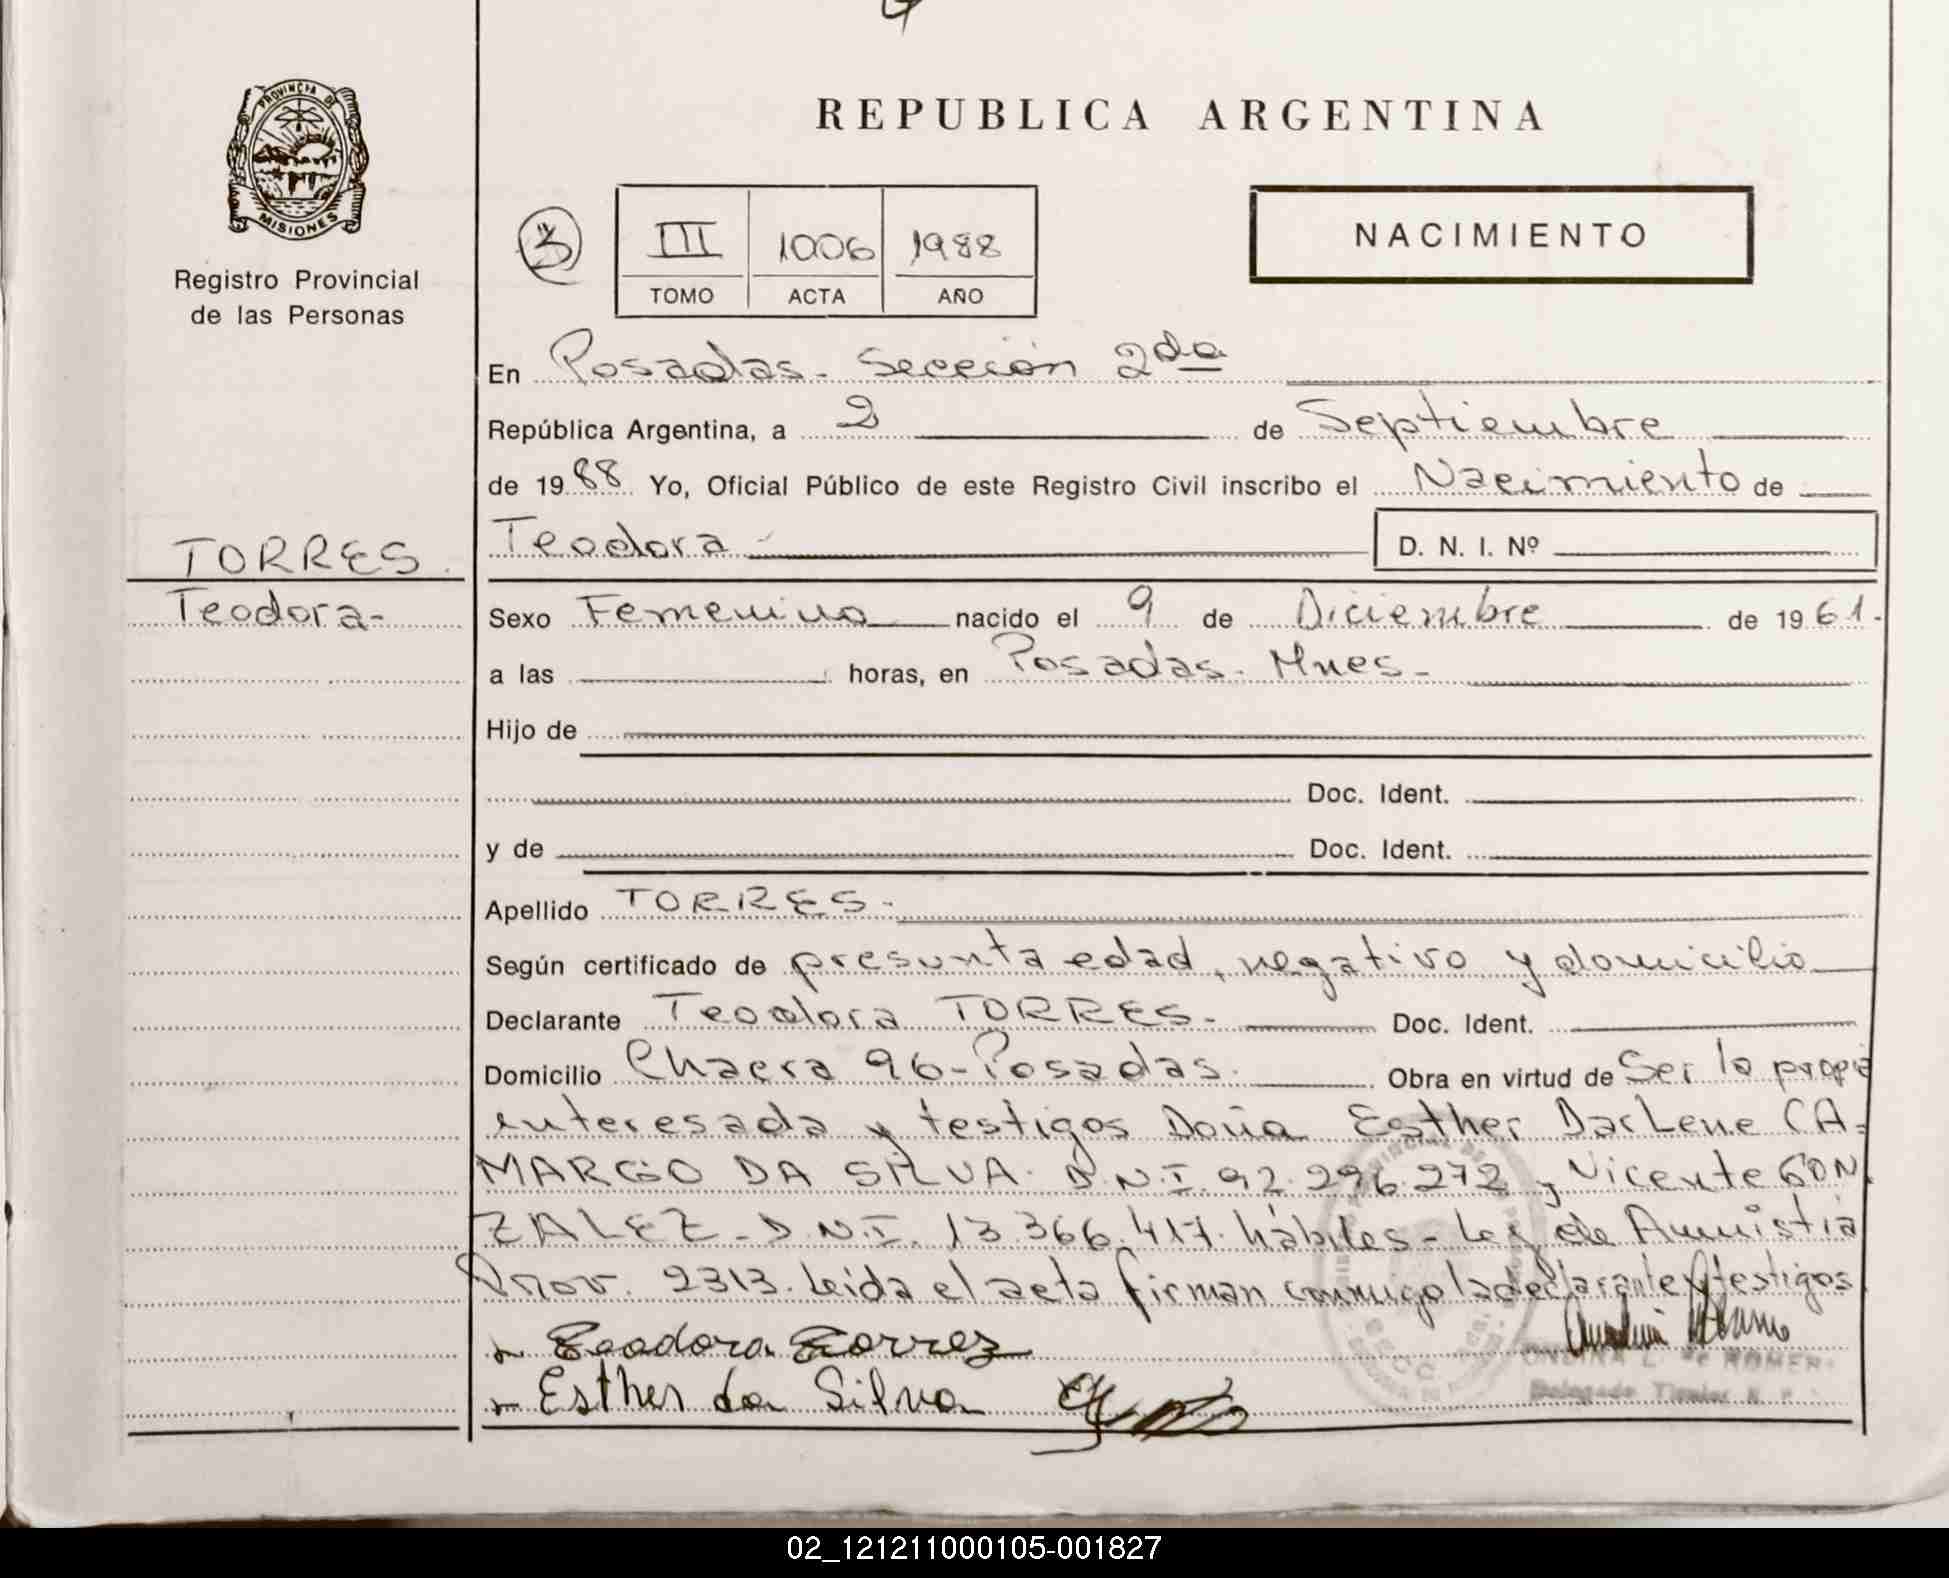 REPUBLICA ARGENTINA
PROVINCIA DE
MISIONES
Registro Provincial
de las Personas
3
III 1006 1988
TOMO ACTA AÑO
NACIMIENTO
En Posadas. Sección 2da
República Argentina, a 2 de Septiembre
de 1988 Yo, Oficial Público de este Registro Civil inscribo el Nacimiento de
TORRES.
Teodora D. N. I. Nº
Teodora-
Sexo Femenino nacido el 9 de Diciembre de 1961.
a las horas, en Posadas. Mnes-
Hijo de
Doc. Ident.
y de Doc. Ident.
Apellido TORRES.
Según certificado de presunta edad, negativo y domicilio
Declarante Teodora TORRES. Doc. Ident.
Domicilio Chacra 96-Posadas. Obra en virtud de Ser la propia
interesada y testigos Doña Esther DarLene CA=
MARGO DA SILVA. D.N.I. 92.296.272 y Vicente GON
ZALEZ. D.N.I. 13.366.417. hábiles- Ley de Amnistia
Prov. 2313. Leida el acta firman conmigo la declarante y testigos
Teodora Torrez
Esther da Silva
ONDINA L. de ROMER
Delegado Titular R. P.
02_121211000105-001827